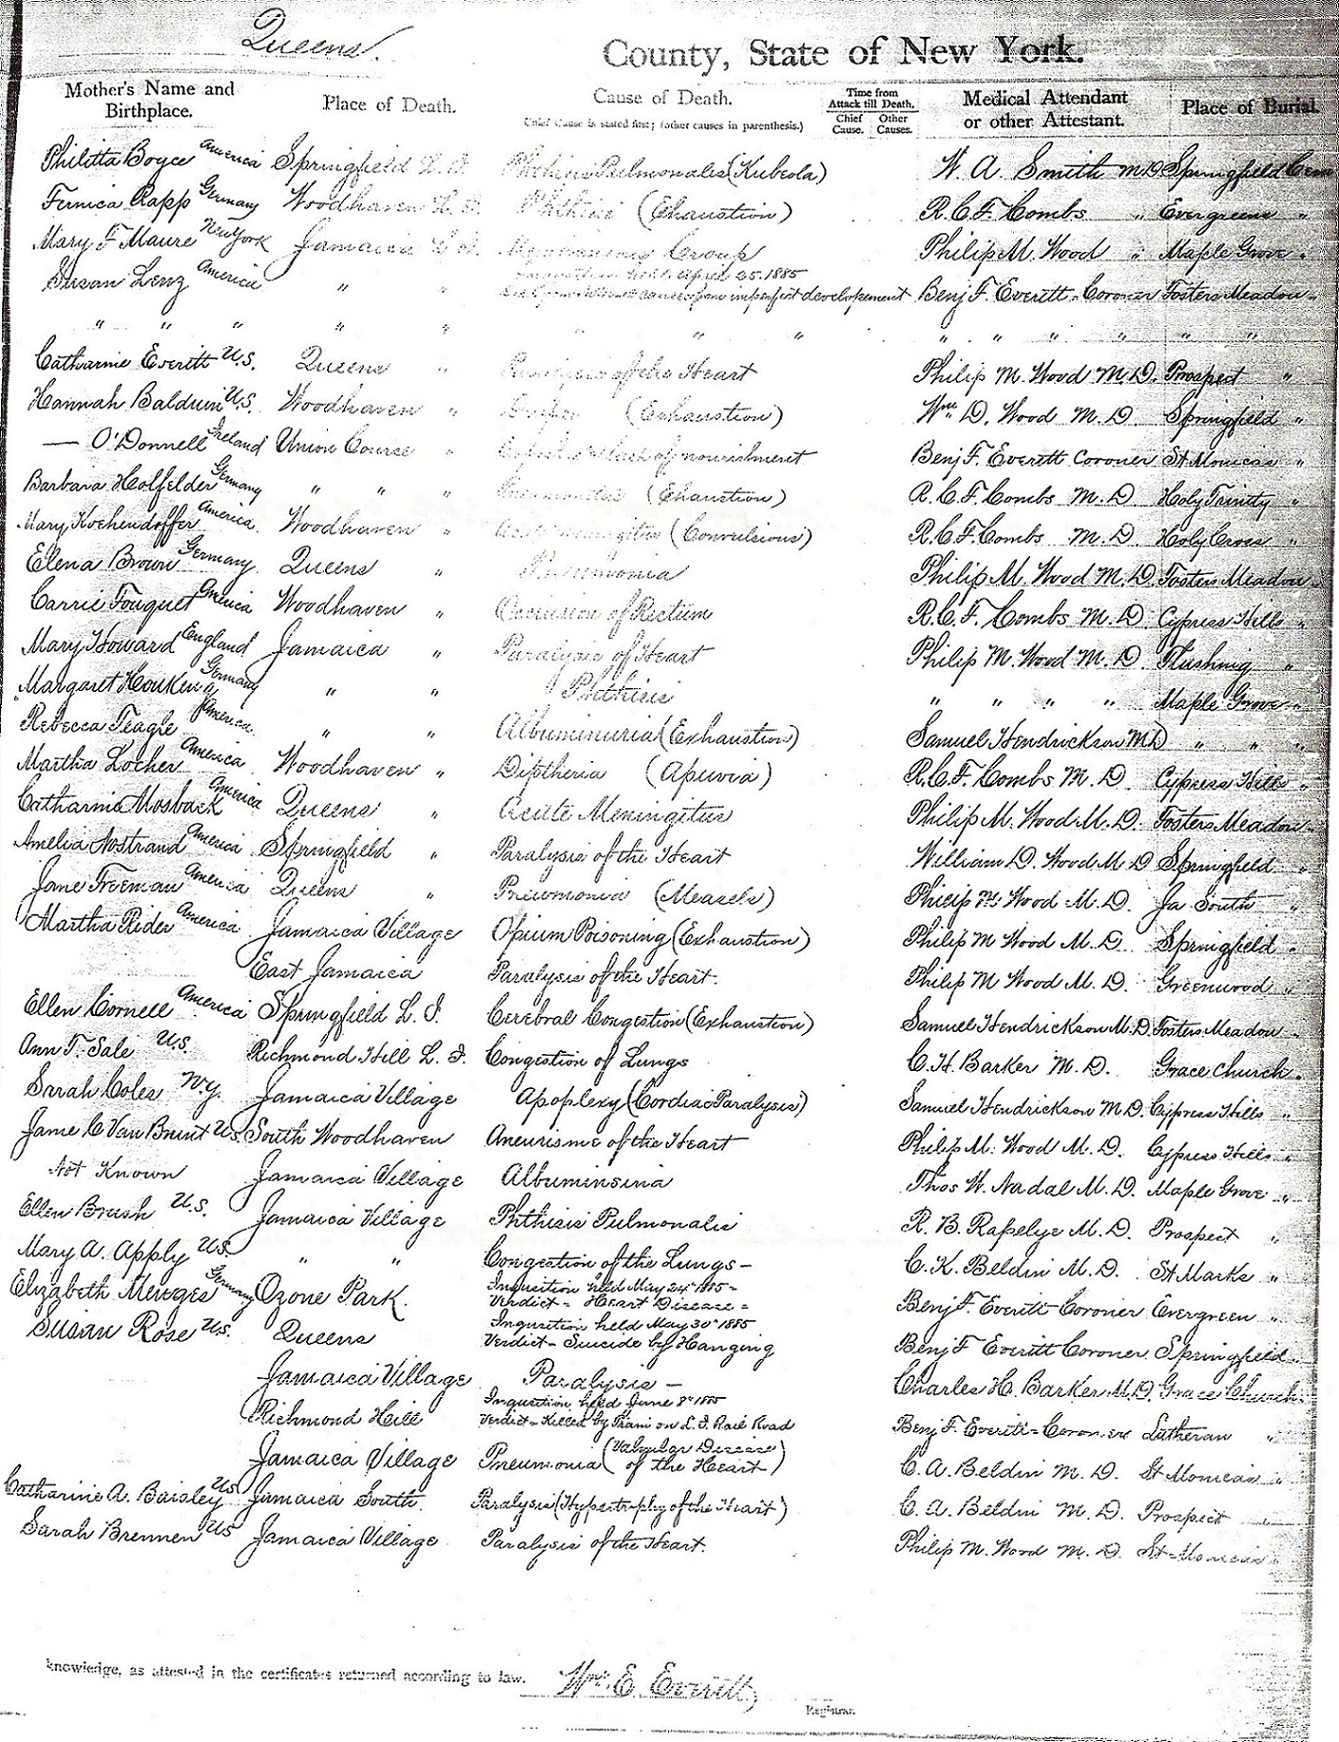 Queens.
County, State of New York.
Mother's Name and Birthplace. Place of Death. Cause of Death. Time from Attack till Death. Medical Attendant or other Attestant. Place of Burial.
Chief Cause is stated first; (other causes in parenthesis.) Chief Cause. Other Causes.
Philitta Boyce America Springfield L. I. Phthisis Pulmonales (Rubeola) W. A. Smith M.D Springfield Cem
Rapp Germany Woodhaven L. I. Phthisis (Exhaustion) R. C. F. Combs " Evergreens "
Mary F Maure New York Jamaica L. I. Membraneous Croup Philip M. Wood " Maple Grove "
Susan Lenz America " " Inquisition held April 25. 1885 imperfect developement Benj F. Everitt - Coroner Fosters Meadow "
" " " " " " " " " " " " "
Catharine Everitt U.S. Queens " Paralysis of the Heart Philip M. Wood M.D. Prospect "
Hannah Baldwin U.S. Woodhaven " (Exhaustion) Wm D. Wood M. D. Springfield "
— O'Donnell Ireland Union Course " lack of nourishment Benj F. Everitt Coroner St Monicas "
Barbara Holfelder Germany " " " (Exhaustion) R. C. F. Combs M. D Holy Trinity "
Mary Kochendoffer America Woodhaven " (Convulsions) R. C. F. Combs M. D. Holy Cross "
Elena Brown Germany Queens " Pneumonia Philip M. Wood M. D. Fosters Meadow "
Carrie Fouquet America Woodhaven " Occlusion of Rectum R. C. F. Combs M. D. Cypress Hills "
Mary Howard England Jamaica " Paralysis of Heart Philip M. Wood M. D. Flushing "
Margaret Germany " " Phthisis " " " " Maple Grove "
Rebecca Teagle America. " " Albuminuria (Exhaustion) Samuel Hendrickson M D " " "
Martha Locher America Woodhaven " Diptheria (Apnoea) R. C. F. Combs M. D. Cypress Hills "
Catharnia Mosback America Queens " Acute Meningitus Philip M. Wood M. D. Fosters Meadow "
Amelia Nostrand America Springfield " Paralysis of the Heart William D. Wood M D Springfield "
Jane Freeman America Queens " Pneumonia (Measels) Philip M. Wood M. D. Ja South "
Martha Rider America Jamaica Village Opium Poisoning (Exhaustion) Philip M Wood M. D. Springfield "
East Jamaica Paralysis of the Heart. Philip M Wood M. D. Greenwood "
Ellen Cornell America Springfield L. I. Cerebral Congestion (Exhaustion) Samuel Hendrickson M. D. Fosters Meadow "
Ann T. Sale U.S. Richmond Hill L. I. Congestion of Lungs C. H. Barker M. D. Grace Church "
Sarah Coles N.Y. Jamaica Village Apoplexy (Cordiac Paralysis) Samuel Hendrickson M. D. Cypress Hills "
Jane C Van Brunt U.S. South Woodhaven Aneurisme of the Heart Philip M. Wood M. D. Cypress Hills "
Not Known Jamaica Village Albuminsina Thos W. Nadal M. D. Maple Grove "
Ellen Brush U.S. Jamaica Village Phthisis Pulmonalis R. B. Rapelye M. D. Prospect "
Mary A. Apply U.S. " " Congestion of the Lungs - C. K. Beldin M. D. St Marks "
Elizabeth Menges Germany Ozone Park. Inquisition held May 24th 1885 - Verdict - Heart Disease = Benj F. Everitt Coroner Evergreen "
Susan Rose U.S. Queens Inquisition held May 30th 1885 Verdict - Suicide by Hanging Benj F Everitt Coroner Springfield "
Jamaica Village Paralysis - Charles H. Barker M. D. Grace Church "
Richmond Hill Inquisition held June 8th 1885 Verdict - Killed by Train on L. I. Rail Road Benj F. Everitt - Coroner Lutheran "
Jamaica Village Pneumonia (Valvular Disease of the Heart) C. A. Beldin M. D. St Monicas "
Catharine A. Baisley US Jamaica South. Paralysis (Hypertrophy of the Heart) C. A. Beldin M. D. Prospect "
Sarah Brennen US Jamaica Village Paralysis of the Heart. Philip M. Wood M. D. St-Monicas "
knowledge, as attested in the certificates returned according to law. Wm. E. Everitt,
Registrar.